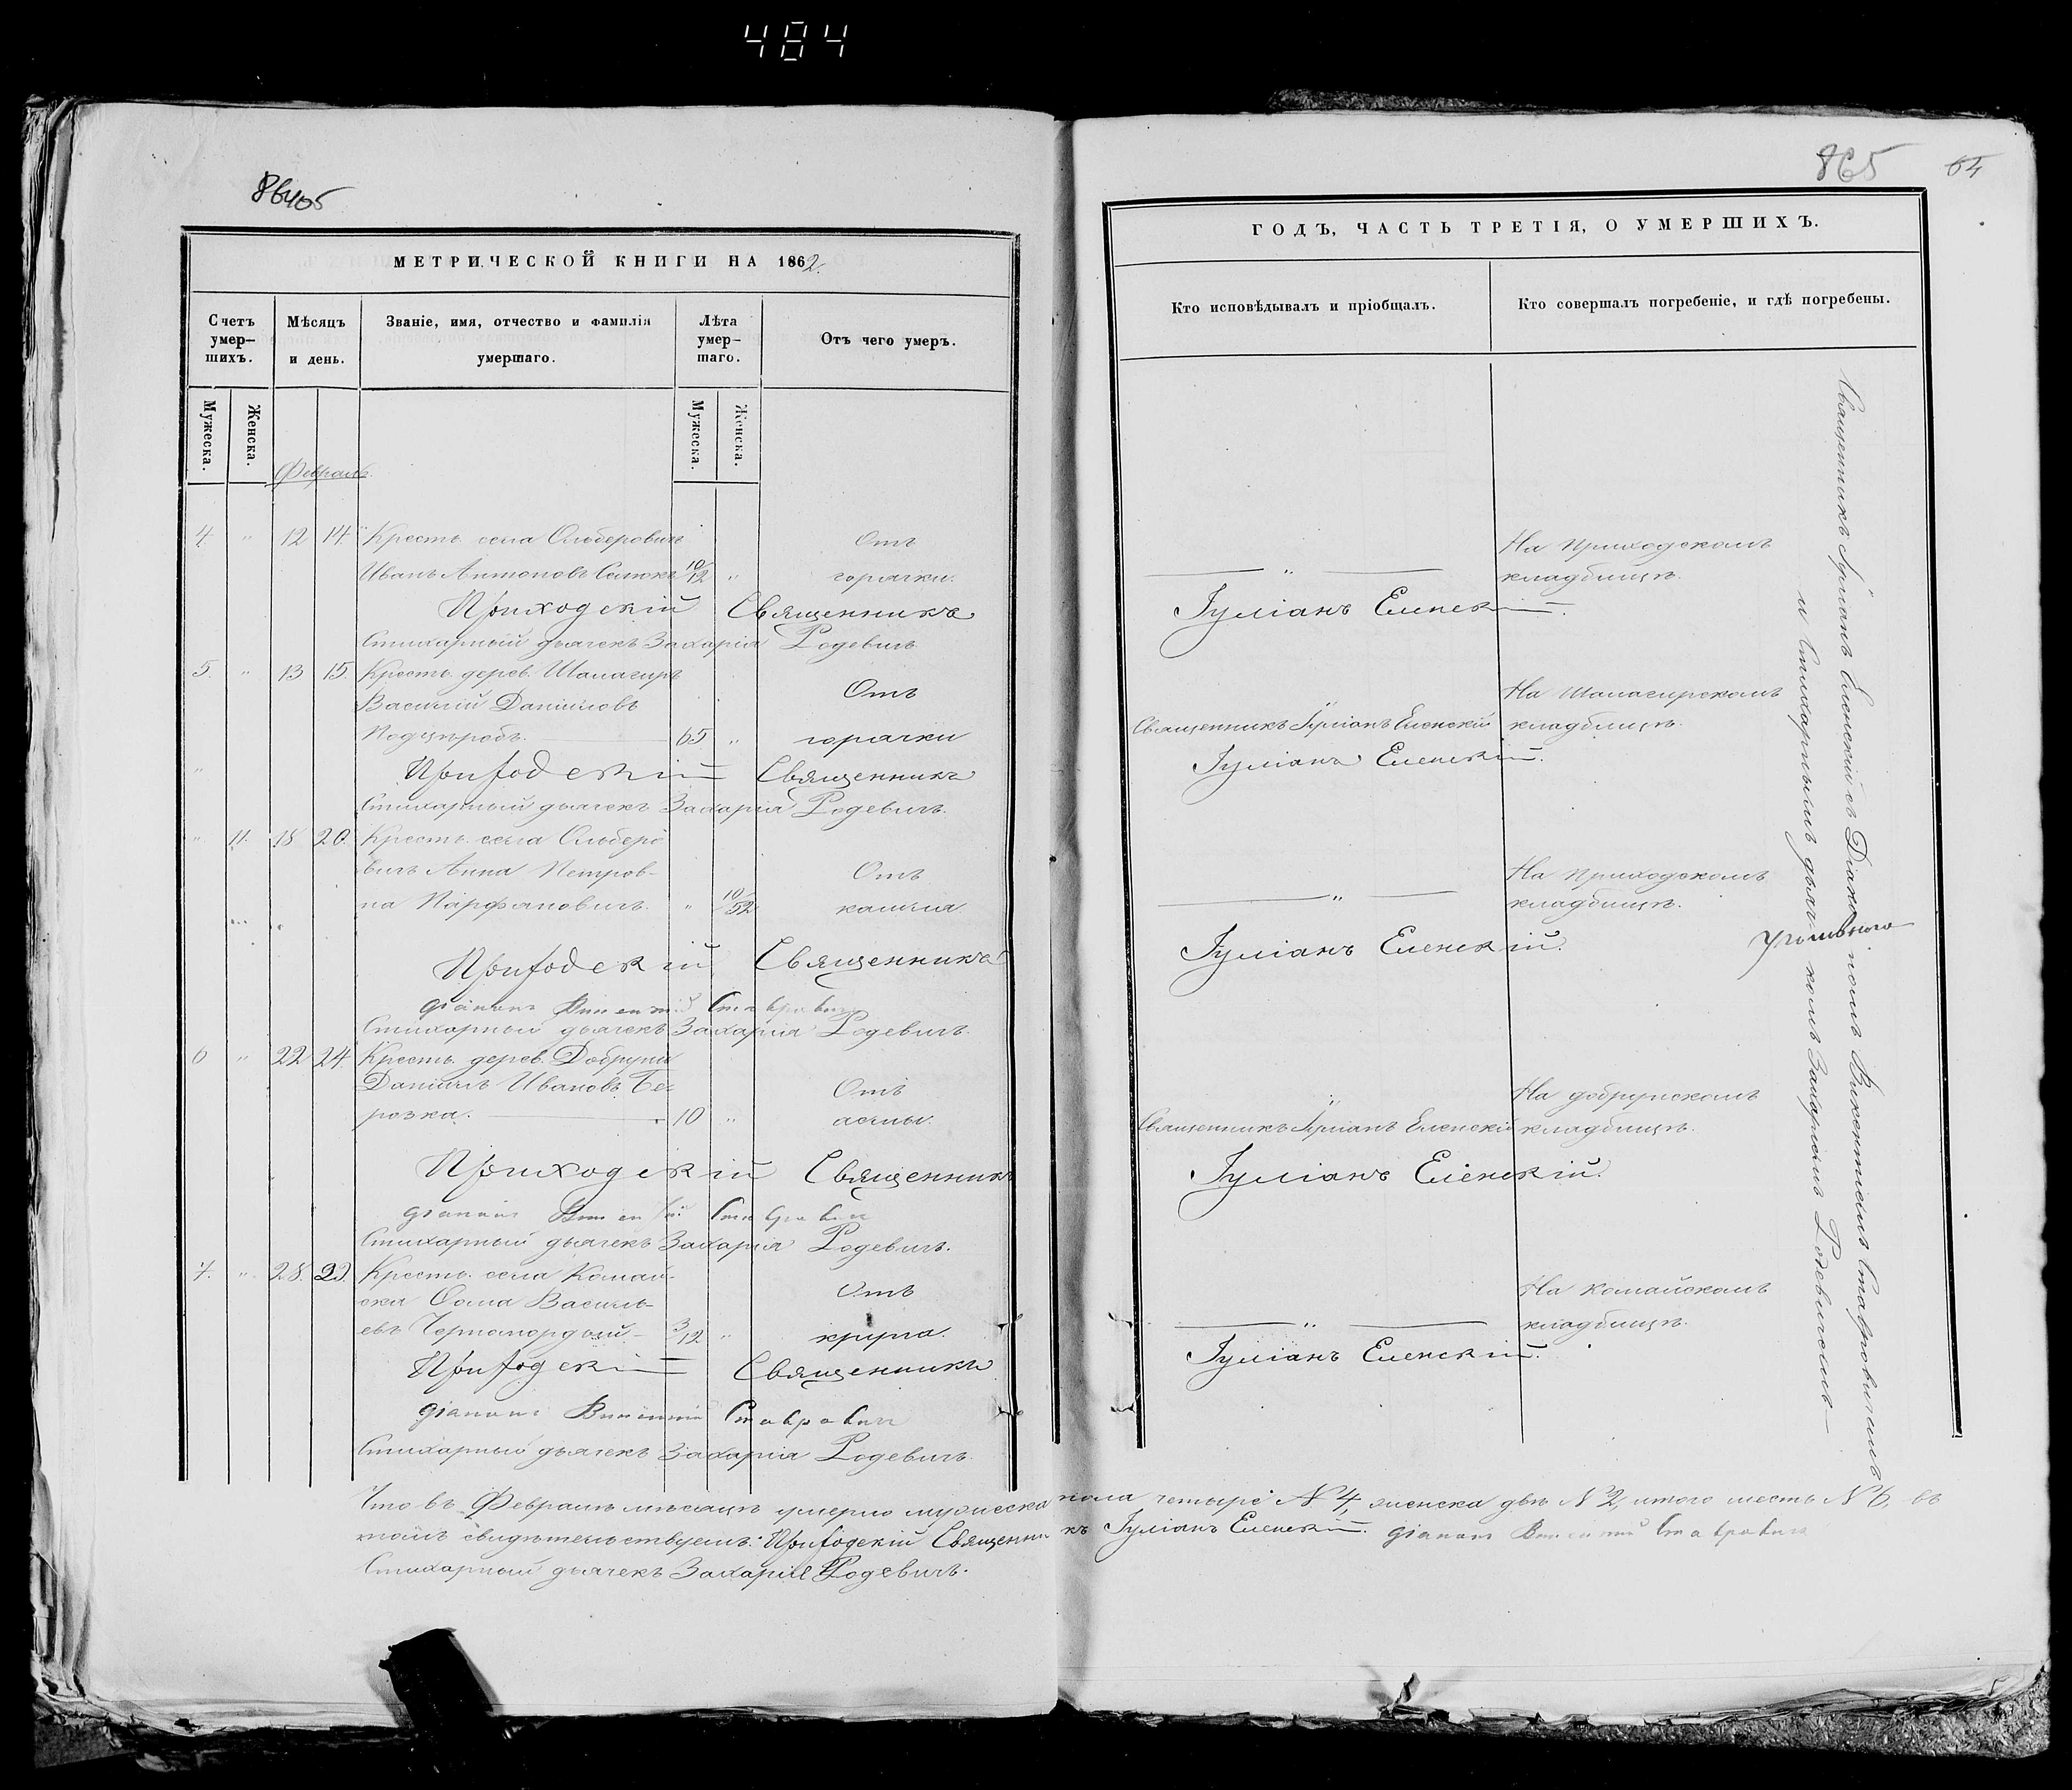 484
86405
МЕТРИЧЕСКОЙ КНИГИ НА 1862.
Счетъ умер-шихъ.
Мѣсяцъ и день.
Званіе, имя, отчество и фамилія умершаго.
Лѣта умер-шаго.
Отъ чего умеръ.
Мужеска.
Женска.
Мужеска.
Женска.
Февраль.
4. " 12 14. Крестъ. села Ольберовичъ Отъ
Иванъ Антоновъ Сенюкъ 10/12 " горячки.
Приходскій Священникъ
Стихарный дьячекъ Захарія Родевичъ
5. " 13 15. Крестъ. дерев. Шалагиръ
Василій Даніиловъ Отъ
65 " горячки
" Приходскій Священникъ
Стихарный дьячекъ Захарія Родевичъ.
" 11. 18 20. Крестъ. села Ольберо
вичъ Анна Петров- Отъ
на Парфяновичъ. " 10/52 кашля
Приходскій Священникъ
діаконъ Викентій Ставровичъ
Стихарный дьячекъ Захарія Родевичъ.
6 " 22 24. Крестъ. дерев. Добрунъ
Даніилъ Ивановъ Бе- Отъ
розка. 10 " аспы.
Приходскій Священникъ
діаконъ Викентій Ставровичъ
Стихарный дьячекъ Захарія Родевичъ.
7. " 28. 29. Крестъ. села Комай-
ска Ѳома Василь- Отъ
евъ Черномордый 3/12 " крупа.
Приходскій Священникъ
діаконъ Викентій Ставровичъ
Стихарный дьячекъ Захарія Родевичъ.
865 64
ГОДЪ, ЧАСТЬ ТРЕТІЯ, О УМЕРШИХЪ.
Кто исповѣдывалъ и пріобщалъ.
Кто совершалъ погребеніе, и гдѣ погребены.
На Приходскомъ
" кладбищѣ.
Іуліанъ Еленскій.
На Шалагирскомъ
Священникъ Іуліанъ Еленскій кладбищѣ.
Іуліанъ Еленскій.
На Приходскомъ
" кладбищѣ.
Іуліанъ Еленскій.
На добрунскомъ
Священникъ Іуліанъ Еленскій кладбищѣ.
Іуліанъ Еленскій.
На Комайскомъ
" кладбищѣ.
Іуліанъ Еленскій.
Священникъ Іуліанъ Еленскій съ Діакономъ Викентіемъ Ставровичемъ
и Стихарнымъ дьячкомъ Захаріемъ Родевичемъ
Что въ Февралѣ мѣсяцѣ умерло мужеска пола четыре N 4, женска двѣ N 2, итого шесть N 6, въ
томъ свидѣтельствуемъ: Приходскій Священникъ Іуліанъ Еленскій. діаконъ Викентій Ставровичъ
Стихарный дьячекъ Захарія Родевичъ.